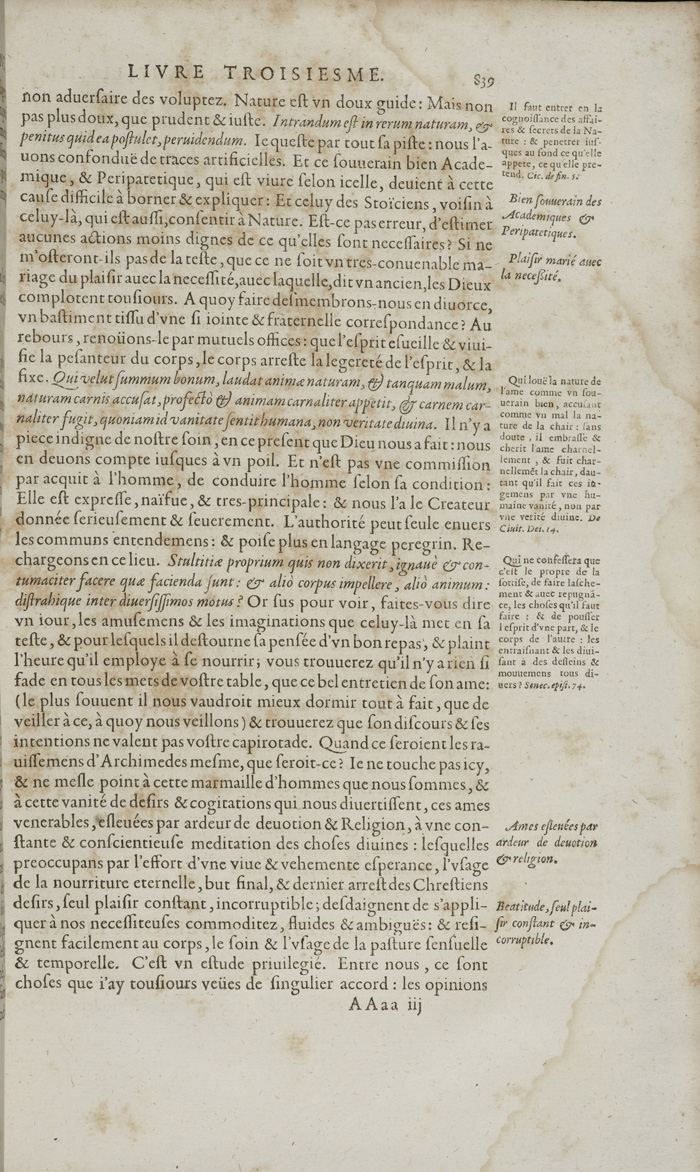 LIVRE TROISIESME.
839
non aduerſaire des voluptez. Nature eſt vn doux guide: Mais non
pas plus doux, que prudent & iuſte. Intrandum eſt in rerum naturam, &
penitus quid ea poſtulet, peruidendum. Ie queſte par tout ſa piſte: nous l'a-
uons confonduë de traces artificielles. Et ce ſouuerain bien Acade-
mique, & Peripatetique, qui eſt viure ſelon icelle, deuient à cette
cauſe difficile à borner & expliquer: Et celuy des Stoïciens, voiſin à
celuy-là, qui eſt auſſi, conſentir à Nature. Eſt-ce pas erreur, d'eſtimer
aucunes actions moins dignes de ce qu'elles ſont neceſſaires? Si ne
m'oſteront-ils pas de la teſte, que ce ne ſoit vn tres-conuenable ma-
riage du plaiſir auec la neceſſité, auec laquelle, dit vn ancien, les Dieux
complotent touſiours. A quoy faire deſmembrons-nous en diuorce,
vn baſtiment tiſſu d'vne ſi iointe & fraternelle correſpondance? Au
rebours, renoüons-le par mutuels offices: que l'eſprit eſueille & viui-
fie la peſanteur du corps, le corps arreſte la legereté de l'eſprit, & la
fixe. Qui velut ſummum bonum, laudat animæ naturam, & tanquam malum,
naturam carnis accuſat, profectò & animam carnaliter appetit, & carnem car-
naliter fugit, quoniam id vanitate ſentit humana, non veritate diuina. Il n'y a
piece indigne de noſtre ſoin, en ce preſent que Dieu nous a fait: nous
en deuons compte iuſques à vn poil. Et n'eſt pas vne commiſſion
par acquit à l'homme, de conduire l'homme ſelon ſa condition:
Elle eſt expreſſe, naïfue, & tres-principale: & nous l'a le Createur
donnée ſerieuſement & ſeuerement. L'authorité peut ſeule enuers
les communs entendemens: & poiſe plus en langage peregrin. Re-
chargeons en ce lieu. Stultitiæ proprium quis non dixerit, ignauè & con-
tumaciter facere quæ facienda ſunt: & aliò corpus impellere, aliò animum:
diſtrahique inter diuerſiſſimos motus? Or ſus pour voir, faites-vous dire
vn iour, les amuſemens & les imaginations que celuy-là met en ſa
teſte, & pour leſquels il deſtourne ſa penſée d'vn bon repas, & plaint
l'heure qu'il employe à ſe nourrir; vous trouuerez qu'il n'y a rien ſi
fade en tous les mets de voſtre table, que ce bel entretien de ſon ame:
(le plus ſouuent il nous vaudroit mieux dormir tout à fait, que de
veiller à ce, à quoy nous veillons) & trouuerez que ſon diſcours & ſes
intentions ne valent pas voſtre capirotade. Quand ce ſeroient les ra-
uiſſemens d'Archimedes meſme, que ſeroit-ce? Ie ne touche pas icy,
& ne meſle point à cette marmaille d'hommes que nous ſommes, &
à cette vanité de deſirs & cogitations qui nous diuertiſſent, ces ames
venerables, eſleuées par ardeur de deuotion & Religion, à vne con-
ſtante & conſcientieuſe meditation des choſes diuines: leſquelles
preoccupans par l'effort d'vne viue & vehemente eſperance, l'vſage
de la nourriture eternelle, but final, & dernier arreſt des Chreſtiens
deſirs, ſeul plaiſir conſtant, incorruptible; deſdaignent de s'appli-
quer à nos neceſſiteuſes commoditez, fluides & ambiguës: & reſi-
gnent facilement au corps, le ſoin & l'vſage de la paſture ſenſuelle
& temporelle. C'eſt vn eſtude priuilegié. Entre nous, ce ſont
choſes que i'ay touſiours veües de ſingulier accord: les opinions
AAaa iij
Il faut entrer en la
cognoiſſance des affai-
res & ſecrets de la Na-
ture: & penetrer iuſ-
ques au fond ce qu'elle
appete, ce qu'elle pre-
tend. Cic. de fin. 5.
Bien ſouuerain des
Academiques &
Peripatetiques.
Plaiſir marié auec
la neceſſité.
Qui louë la nature de
l'ame comme vn ſou-
uerain bien, accuſant
comme vn mal la na-
ture de la chair: ſans
doute, il embraſſe &
cherit l'ame charnel-
lement, & fuit char-
nellemēt la chair, dau-
tant qu'il fait ces iu-
gemens par vne hu-
maine vanité, non par
vne verité diuine. De
Ciuit. Dei. 14.
Qui ne confeſſera que
c'eſt le propre de la
ſotiſe, de faire laſche-
ment & auec repugnā-
ce, les choſes qu'il faut
faire: & de pouſſer
l'eſprit d'vne part, & le
corps de l'autre: les
entraiſnant & les diui-
ſant à des deſſeins &
mouuemens tous di-
uers? Senec. epiſt. 74.
Ames eſleuées par
ardeur de deuotion
& religion.
Beatitude, ſeul plai-
ſir conſtant & in-
corruptible.